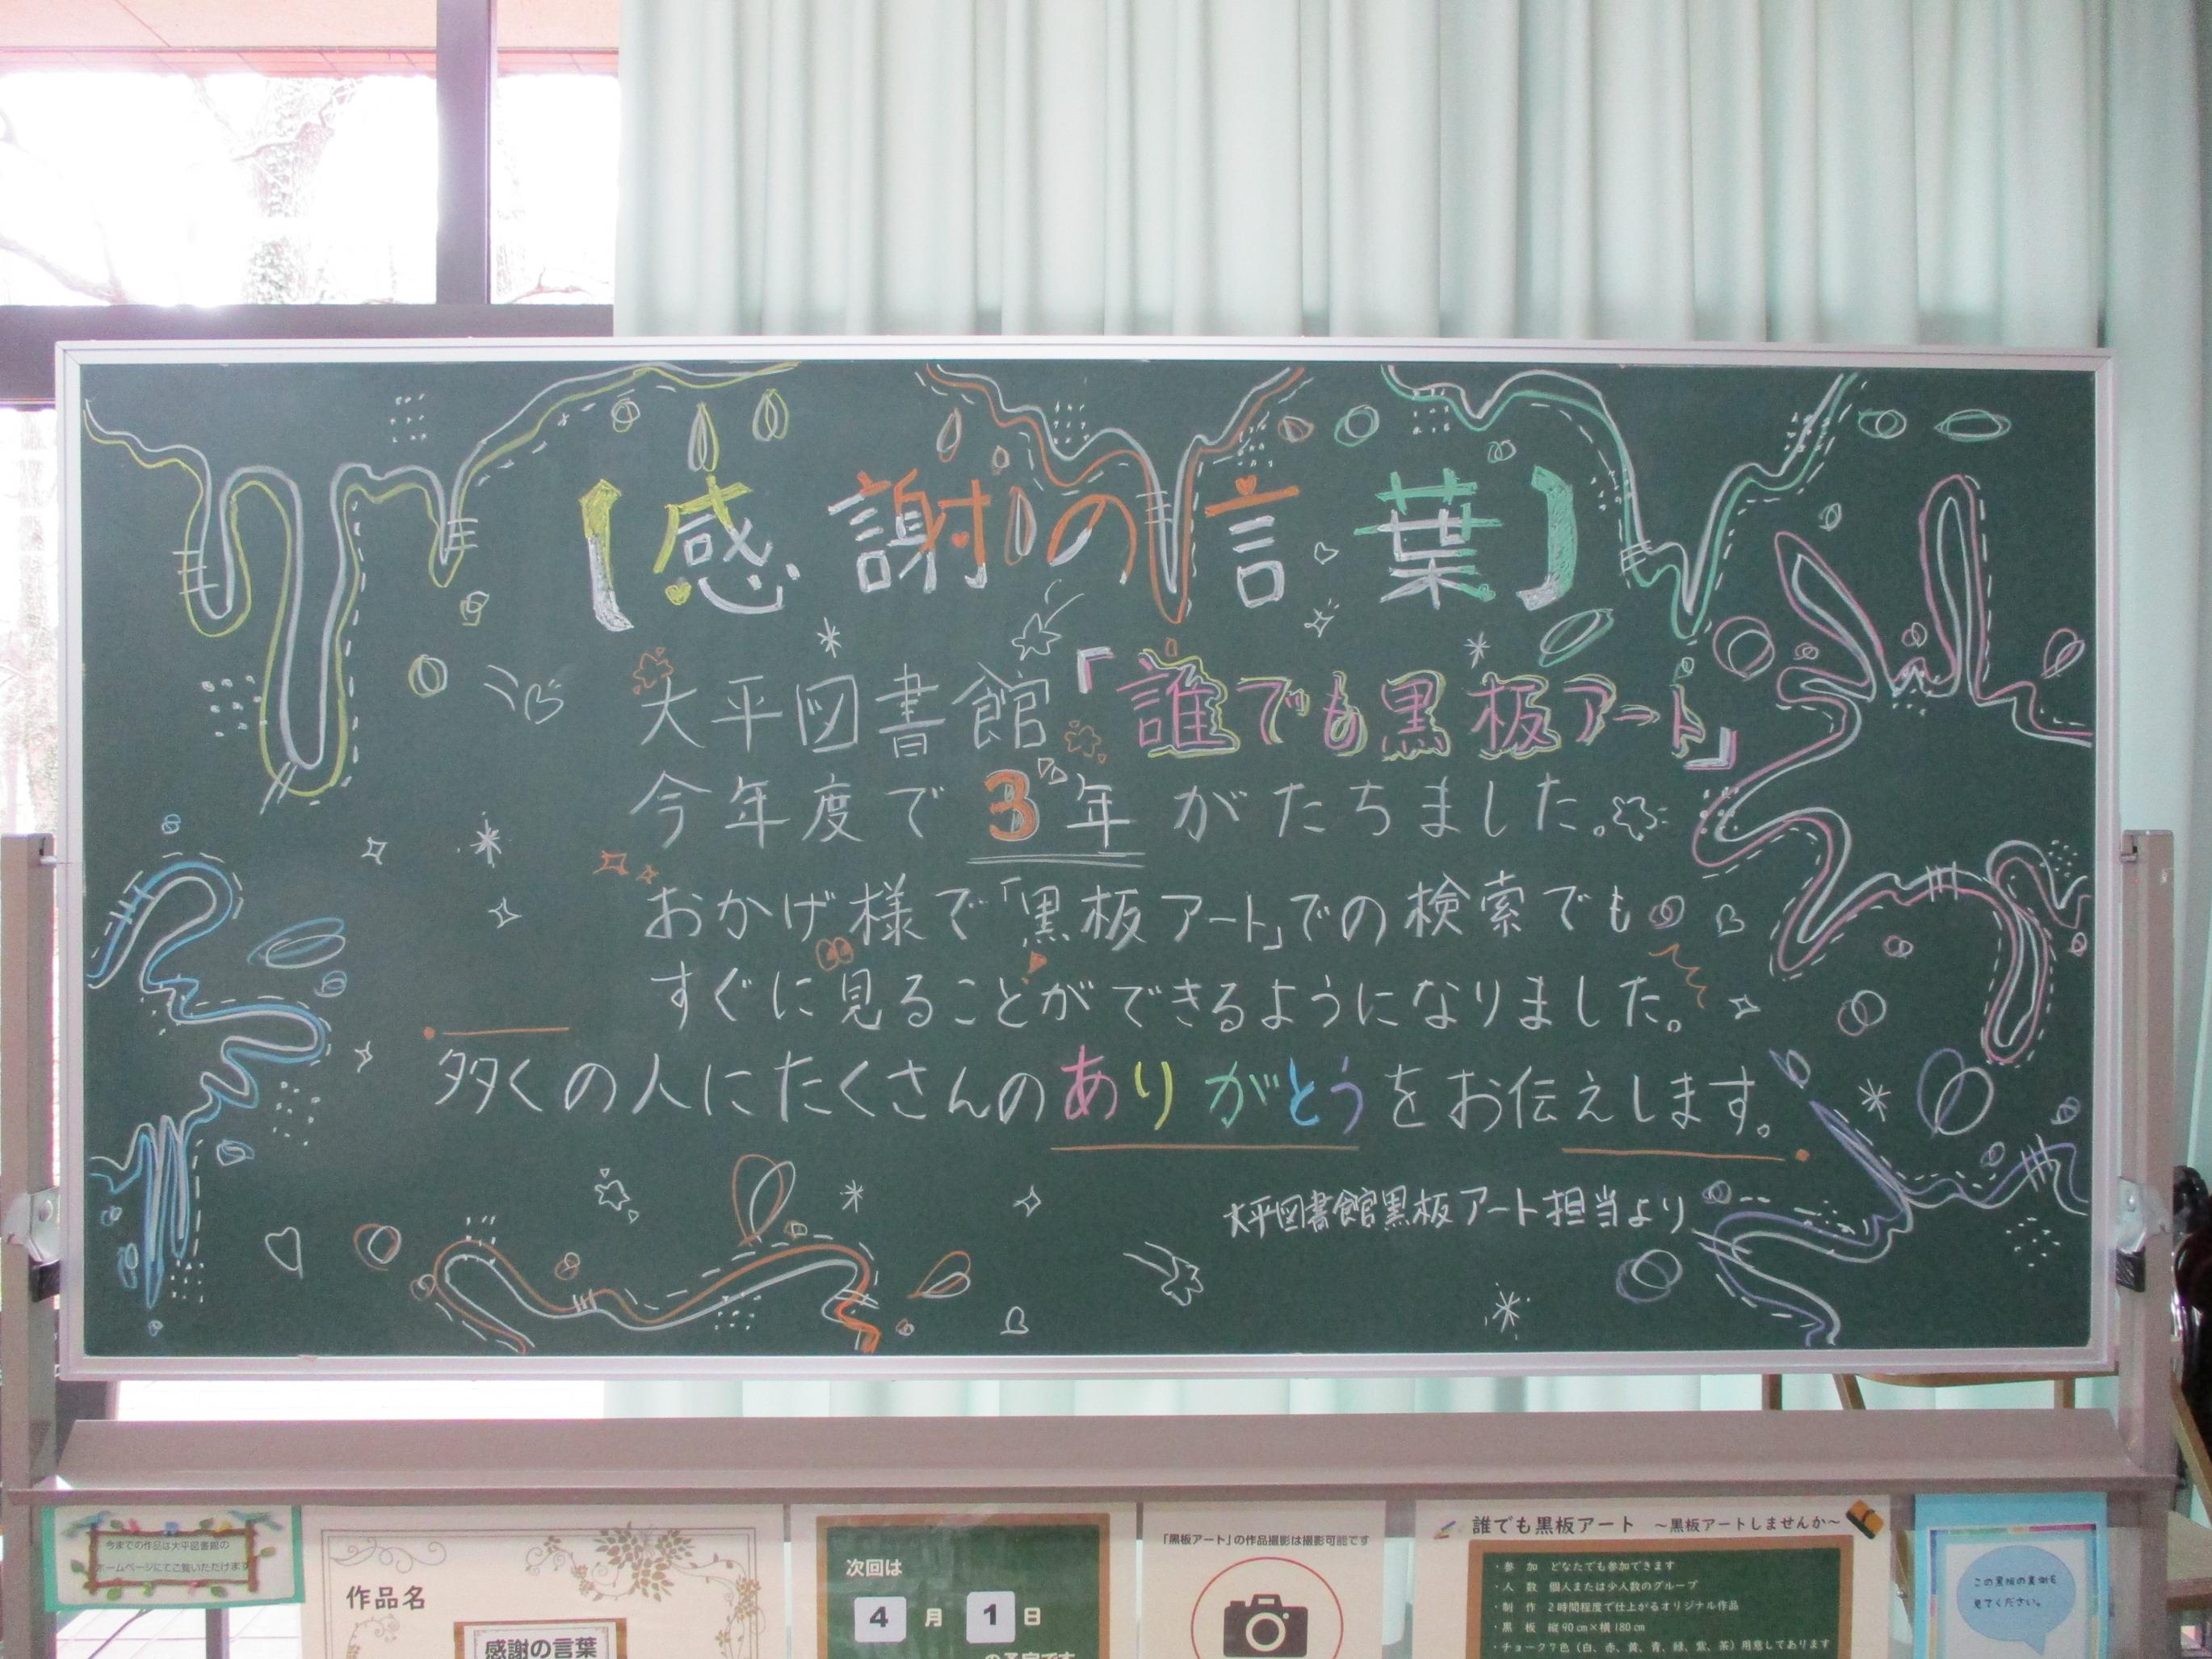 【感謝の言葉】
大平図書館「誰でも黒板アート」
今年度で3年がたちました。
おかげ様で「黒板アート」での検索でも
すぐに見ることができるようになりました。
多くの人にたくさんのありがとうをお伝えします。
大平図書館黒板アート担当より
今までの作品は大平図書館の
ホームページにてご覧いただけます
作品名
感謝の言葉
次回は
4月1日
の予定です
「黒板アート」の作品撮影は撮影可能です
誰でも黒板アート ～黒板アートしませんか～
・参 加 どなたでも参加できます
・人 数 個人または少人数のグループ
・制 作 2時間程度で仕上がるオリジナル作品
・黒 板 縦90㎝×横180㎝
・チョーク7色（白、赤、黄、青、緑、紫、茶）用意してあります
この黒板の裏側も
見てください。